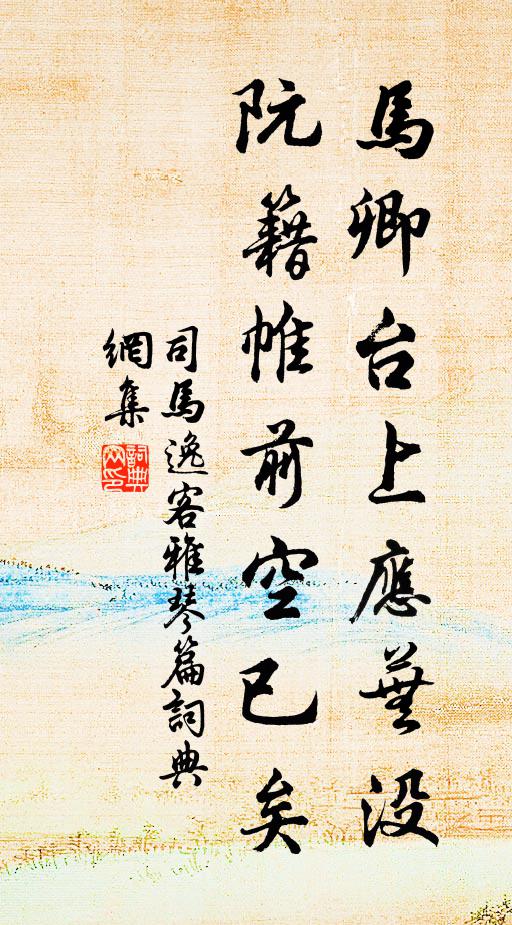 馬卿台上應蕪没
阮籍帷前空已矣
司馬逸客雅琴篇詞典
網集
詞典網印